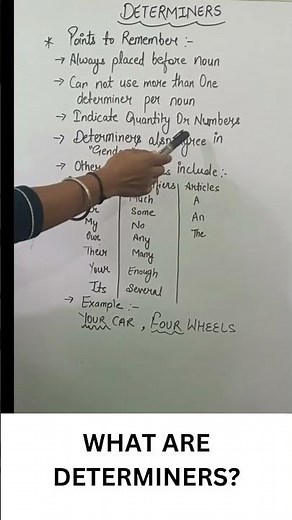 DETERMINERS
* Points to Remember :-
→ Always placed before noun
→ Can not use more than One
determiner per noun
→ Indicate Quantity Or Numbers
→ Determiners also agree in
→ Other include :-
Articles
Much A
Some An
My No The
Our Any
Their Many
Your Enough
Its Several
→ Example :-
YOUR CAR , FOUR WHEELS
WHAT ARE
DETERMINERS?